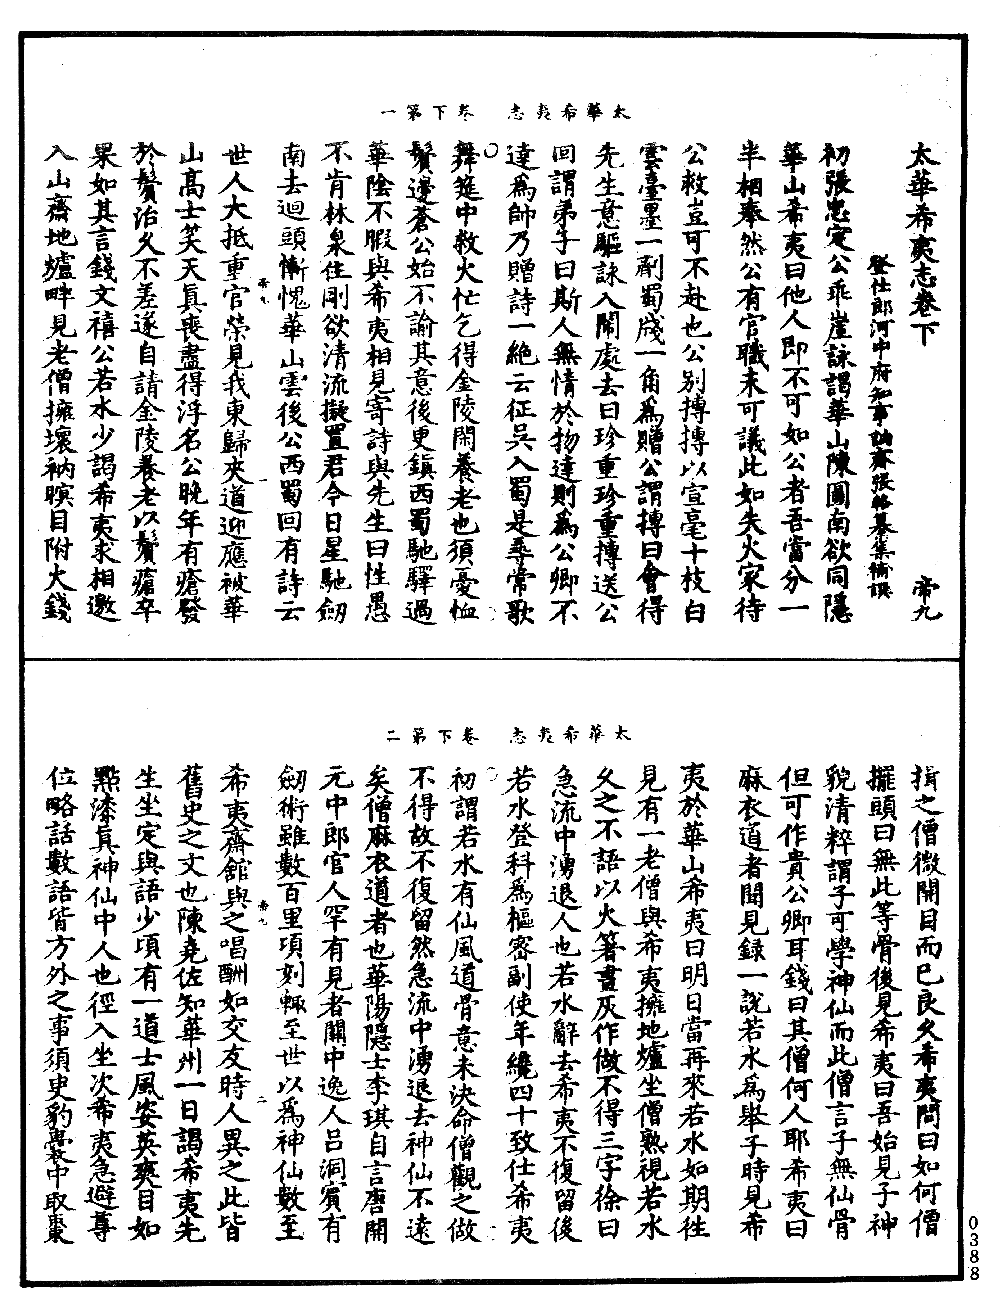 太華希夷志　卷下第一
太華希夷志卷下　帝九
登仕郎河中府知事訥齋張輅纂集編撰
初張忠定公乖崖詠謁華山陳圖南欲同隱
華山希夷曰他人即不可如公者吾當分一
半相奉然公有官職未可議此如失火家待
公救豈可不赴也公別摶摶以宣毫十枝白
雲臺墨一劑蜀牋一角為贈公謂摶曰會得
先生意驅詠入鬧處去曰珍重珍重摶送公
回謂弟子曰斯人無情於物達則為公卿不
達為帥乃贈詩一絕云征吳入蜀是尋常歌
舞筵中救火忙乞得金陵閑養老也須憂恤
鬢邊蒼公始不諭其意後更鎮西蜀馳驛過
華陰不暇與希夷相見寄詩與先生曰性愚
不肯林泉住剛欲清流擬置君今日星馳劒
南去迴頭慚愧華山雲後公西蜀回有詩云
帝九　一
世人大抵重官榮見我東歸夾道迎應被華
山高士笑天真喪盡得浮名公晚年有瘡發
於鬢治久不差遂自請金陵養老以鬢瘡卒
果如其言錢文禧公若水少謁希夷求相邀
入山齋地爐畔見老僧擁壞衲瞑目附火錢
太華希夷志　卷下第二
揖之僧微開目而已良久希夷問曰如何僧
擺頭曰無此等骨後見希夷曰吾始見子神
貌清粹謂子可學神仙而此僧言子無仙骨
但可作貴公卿耳錢曰其僧何人耶希夷曰
麻衣道者聞見録一說若水為舉子時見希
夷於華山希夷曰明日當再來若水如期徃
見有一老僧與希夷擁地爐坐僧熟視若水
久之不語以火箸畫灰作做不得三字徐曰
急流中湧退人也若水辭去希夷不復留後
若水登科為樞密副使年纔四十致仕希夷
初謂若水有仙風道骨意未決命僧觀之做
不得故不復留然急流中湧退去神仙不遠
矣僧麻衣道者也華陽隱士李琪自言唐開
元中郎官人罕有見者關中逸人吕洞賓有
劒術雖數百里頃刻輒至世以為神仙數至
帝九　二
希夷齋館與之唱酬如交友時人異之此皆
舊史之文也陳堯佐知華州一日謁希夷先
生坐定與語少頃有一道士風姿英爽目如
點漆真神仙中人也徑入坐次希夷急避尊
位略話數語皆方外之事須臾豹囊中取棗
0388